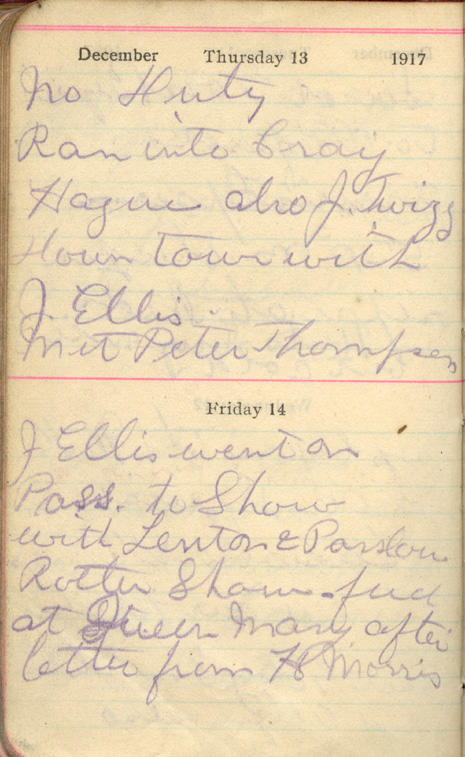 December Thursday 13 1917
No Duty
Ran into Cray
Hague also J. Twigg
Down town with
J. Ellis.
Met Peter Thompson
Friday 14
J Ellis went on
Pass. to Show
with Lenton & Parslow
Rotten Show - fed
at Queen Mary after
letter from H Morris